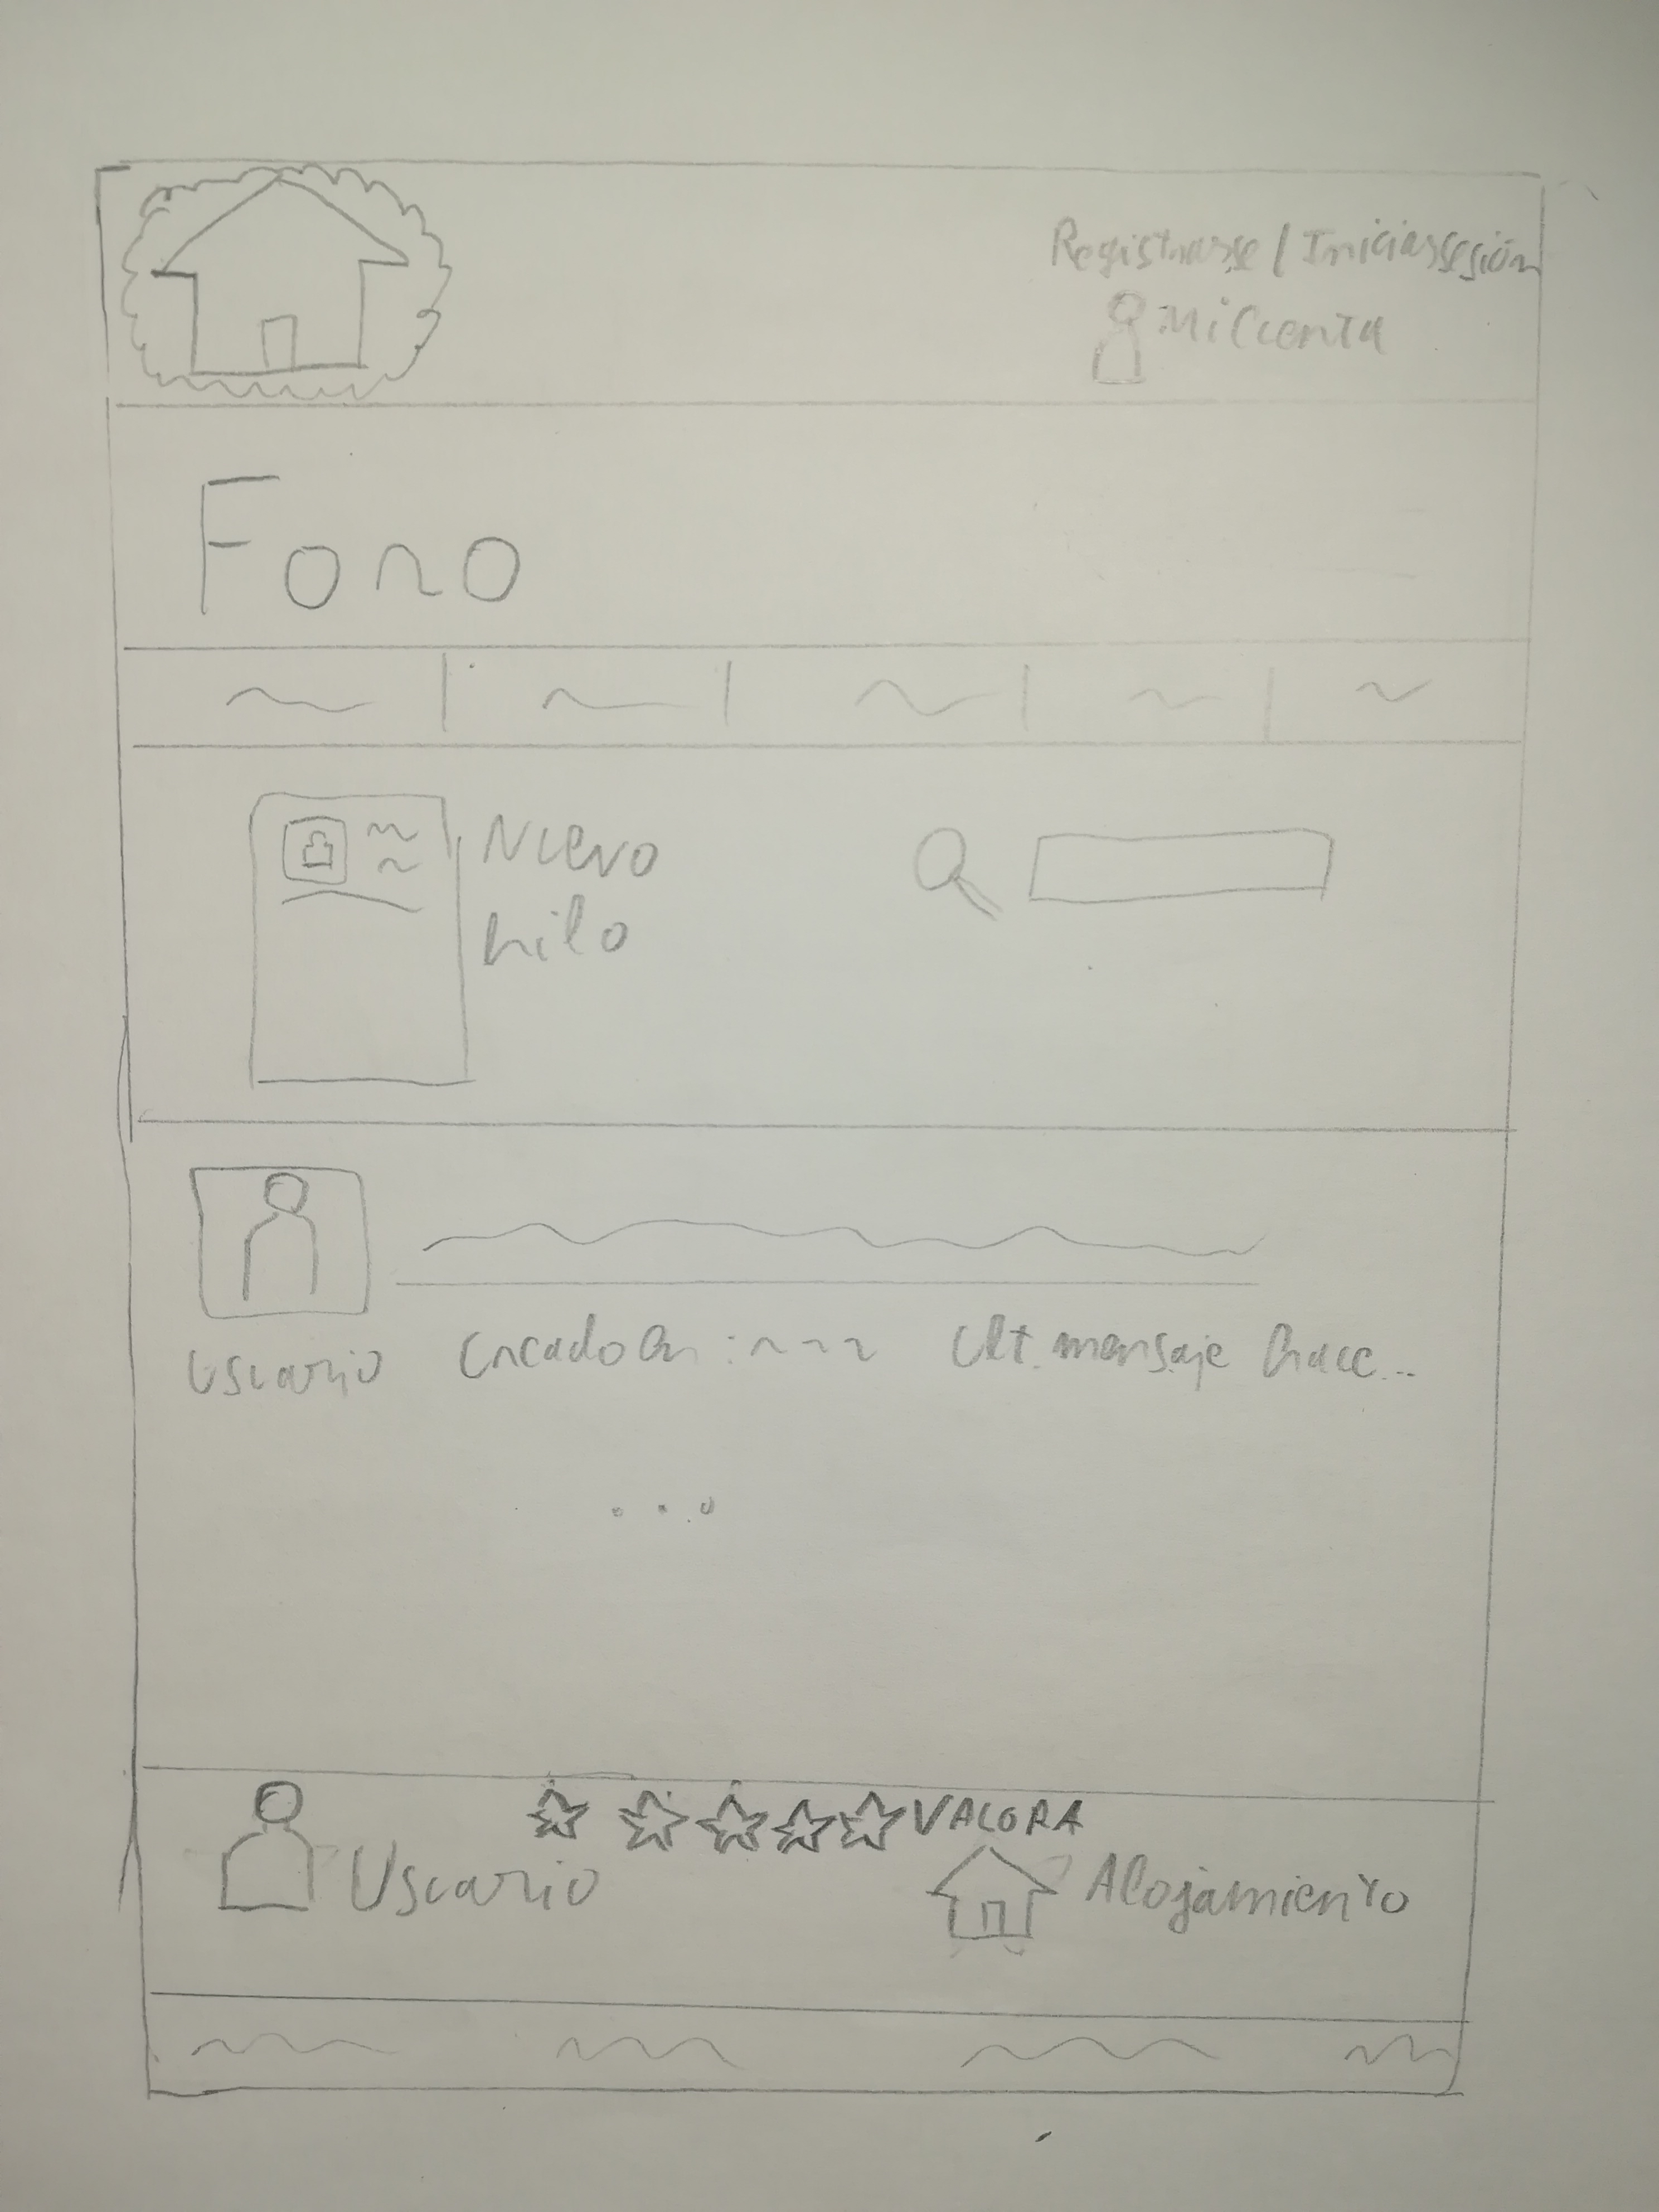 Registrarse / Iniciar sesión
Mi Cuenta
Foro
Nuevo
hilo
Usuario Creado en: Ult. mensaje hace...
...
VALORA
Usuario Alojamiento